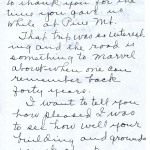 to thank you for the
time you gave us
while at Pine Mt.
That trip was so interest
ing and the road is
something to marvel
about when one can
remember back
forty years.
I want to tell you
how pleased I was
to see how well your
building and grounds